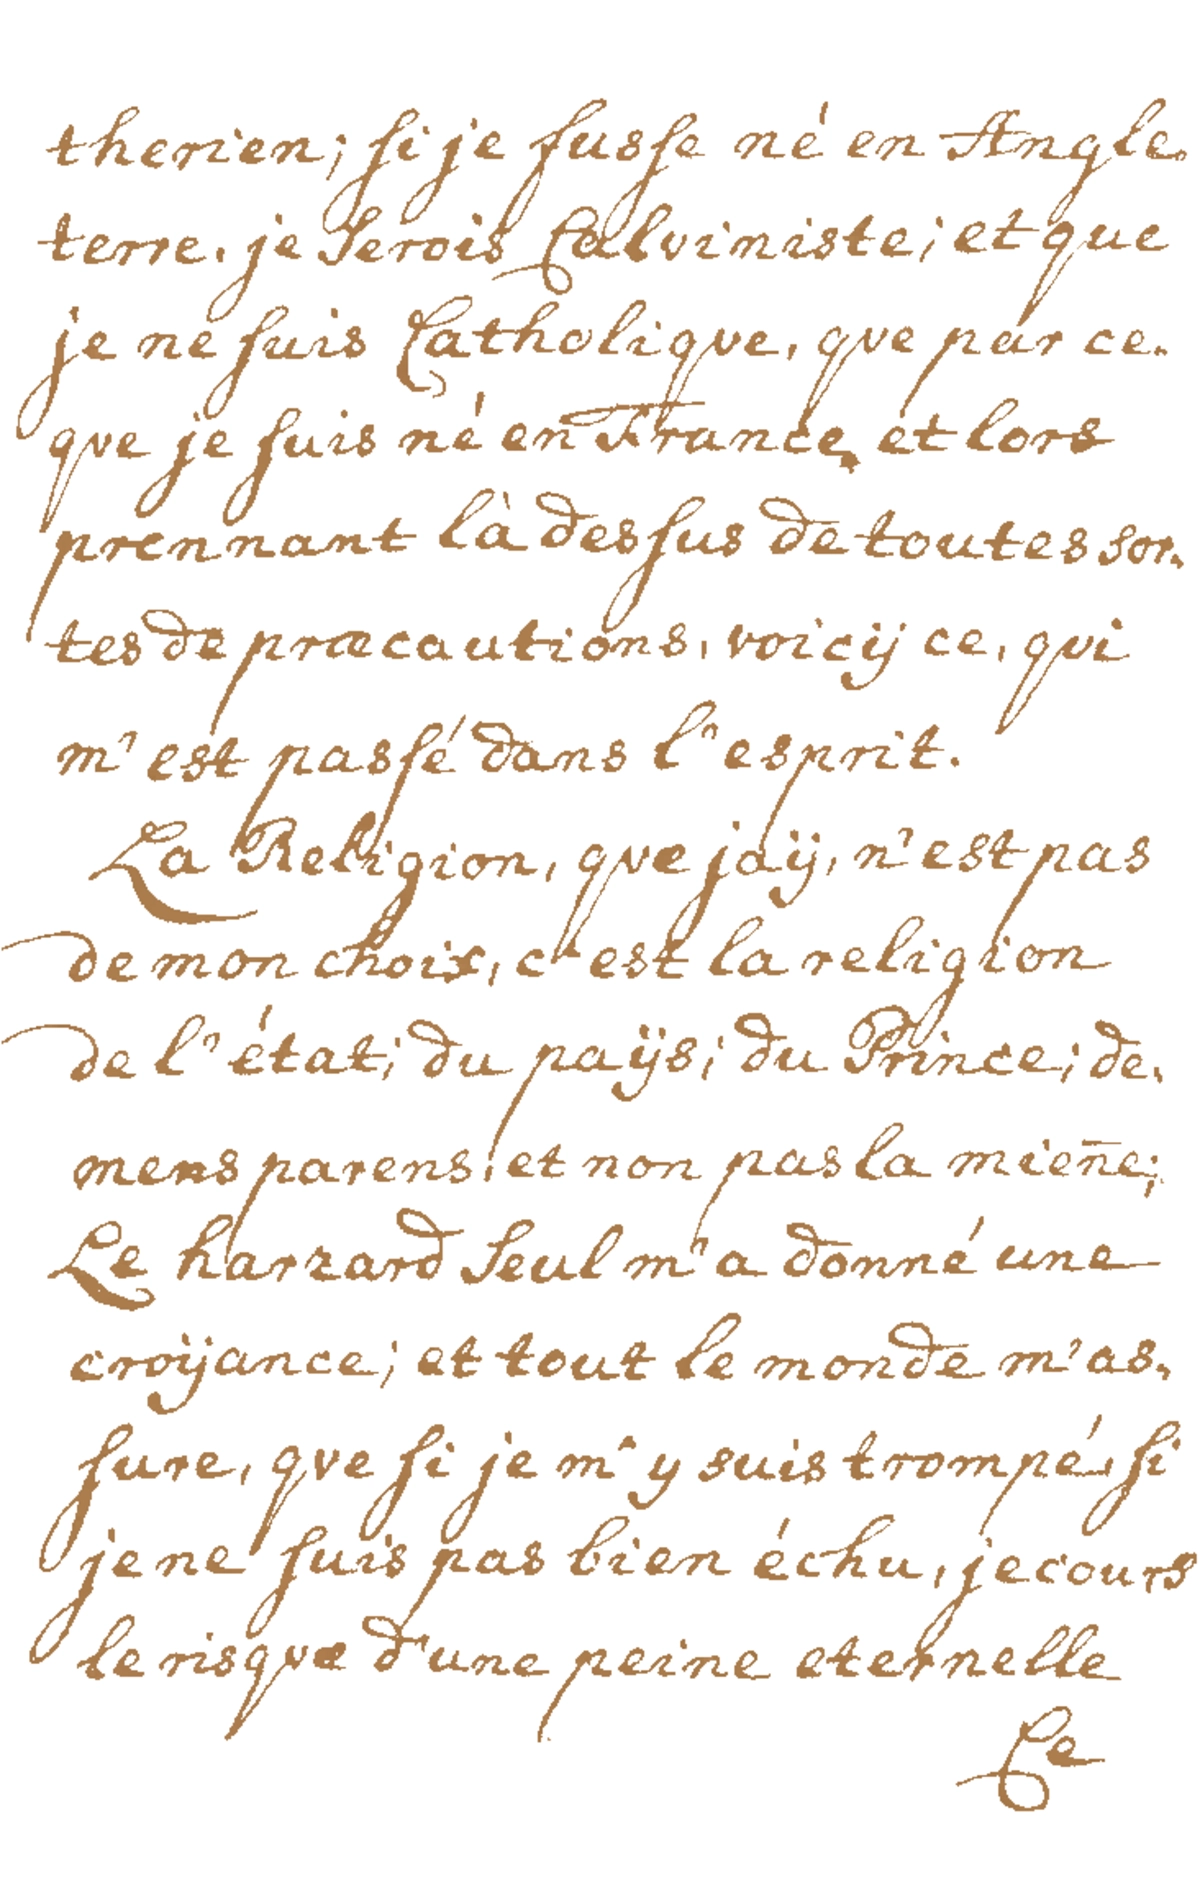 therien; si je fusse né en Angle.
terre. je Serois Calviniste; et que
je ne suis Catholique, que par ce.
que je suis né en France, et lors
prennant là dessus de toutes sor.
tes de præcautions, voicÿ ce, qui
m'est passé dans l'esprit.
La Religion, que jaÿ, n'est pas
de mon choix, c'est la religion
de l'état; du paÿs; du Prince; de.
mens parens, et non pas la mien̄e;
Le harzard Seul m'a donné une
croÿance; et tout le monde m'as.
sure, que si je m'y suis trompé, si
je ne suis pas bien échu, je cours
le risque d'une peine eternelle
Ce